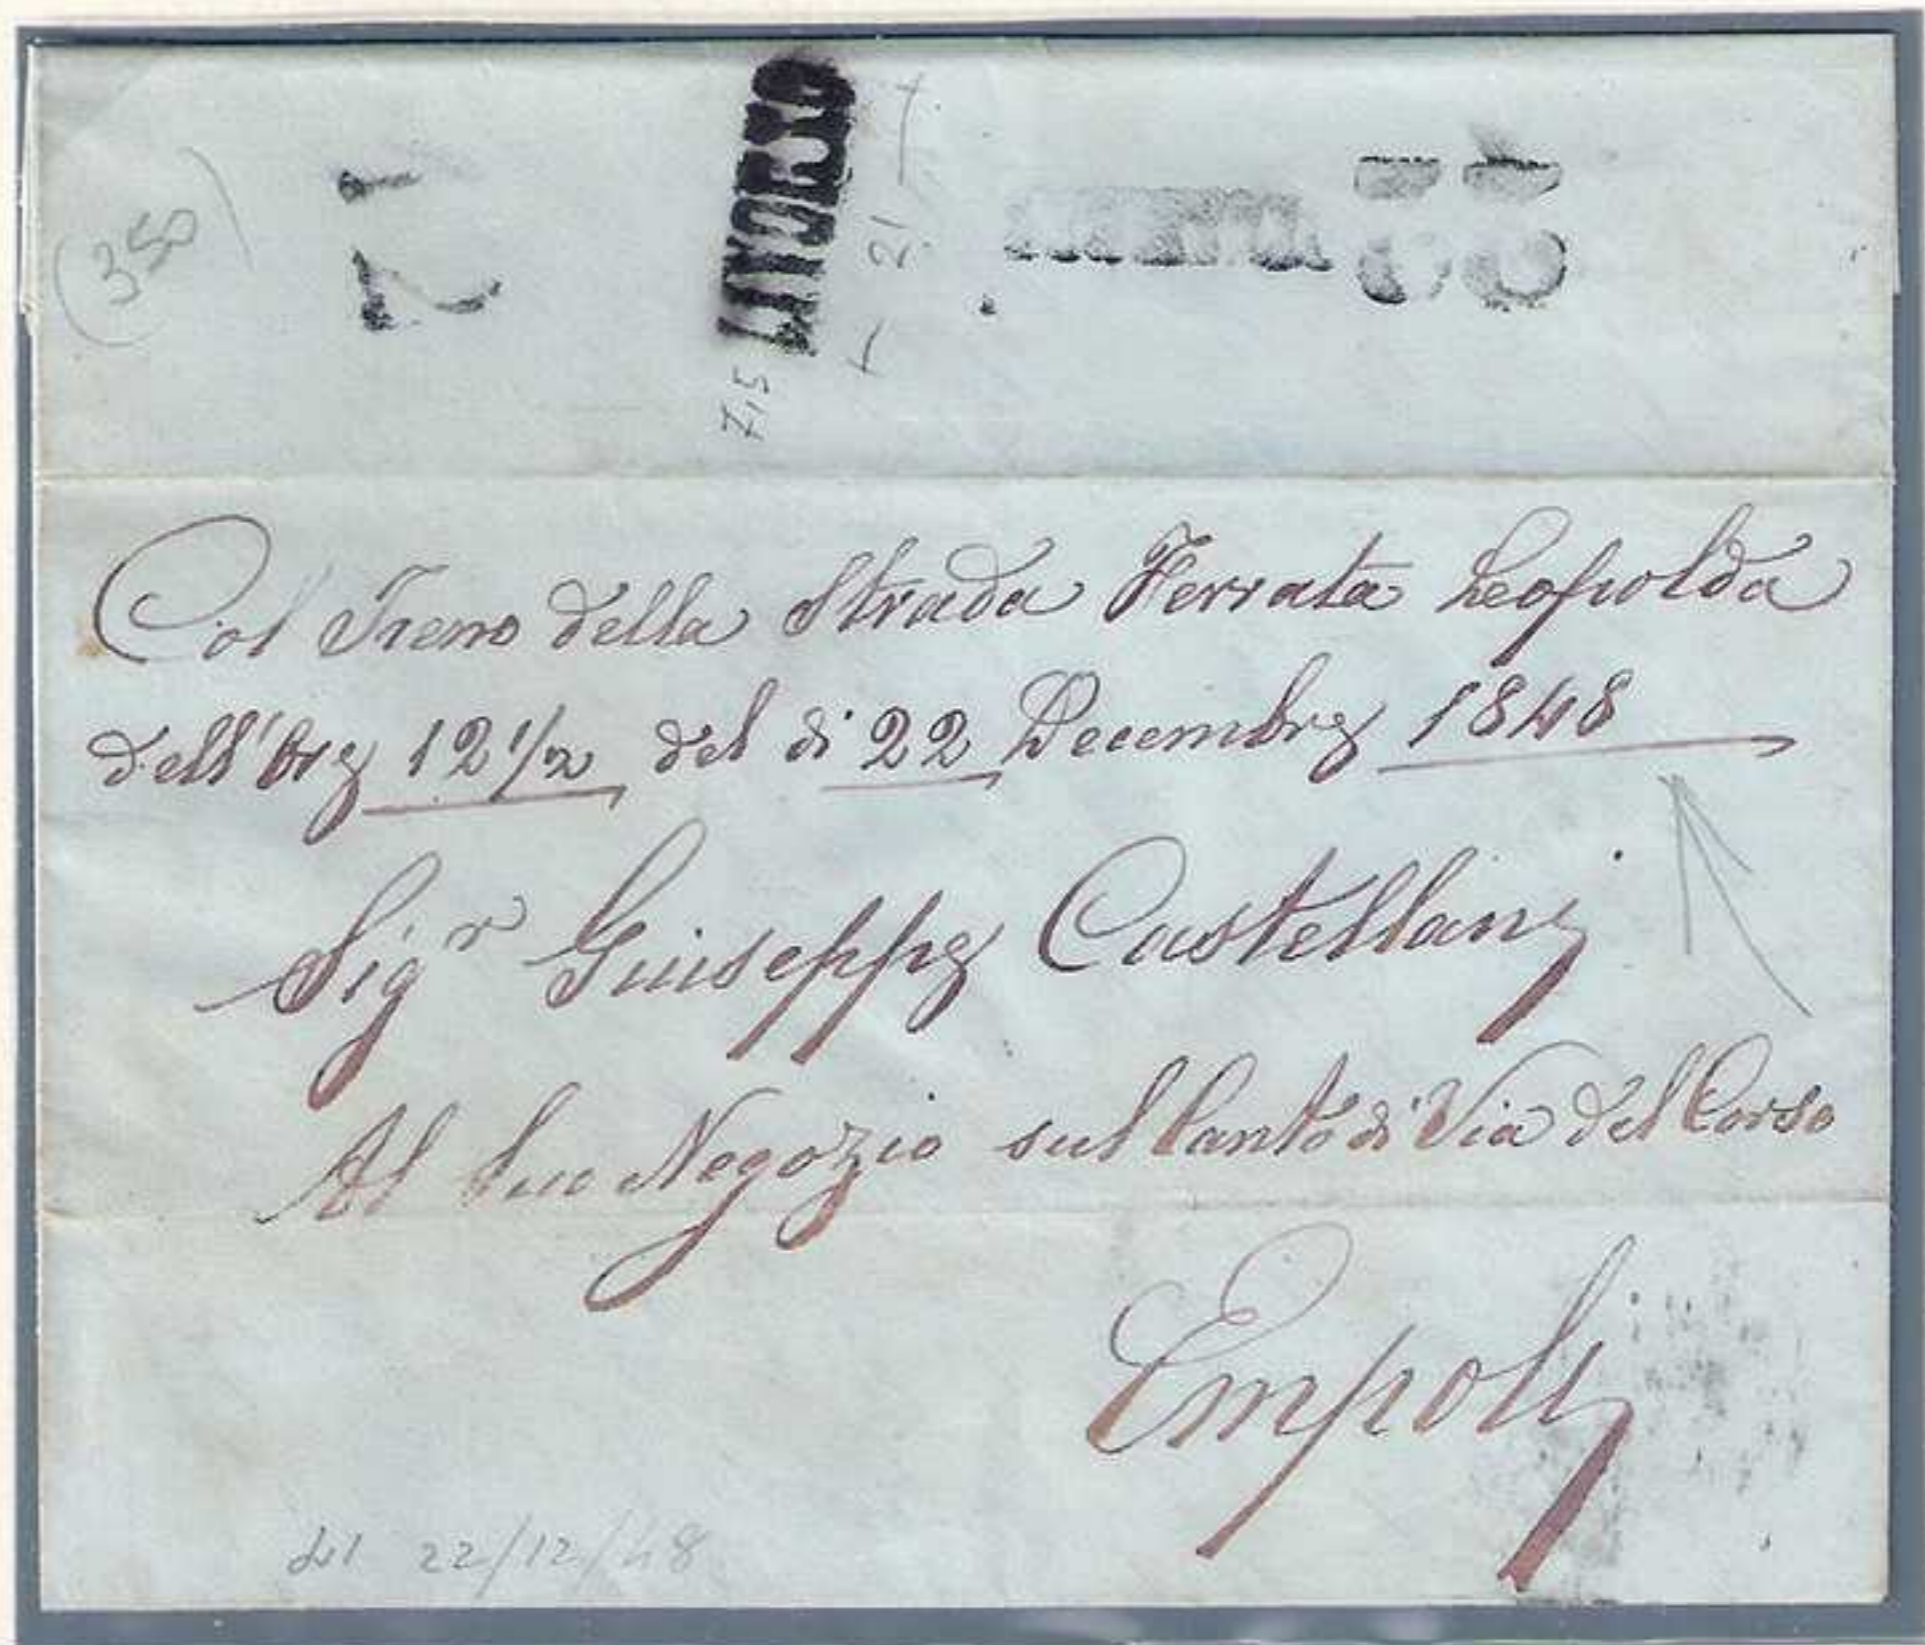 (350)
LIVORNO
21
Col Treno della Strada Ferrata Leopolda
dell'Ore 12 1/2 del di 22 Decembre 1848
Sigr Giuseppe Castellani
Al suo Negozio sul Canto di Via del Corso
Empoli
22/12/48